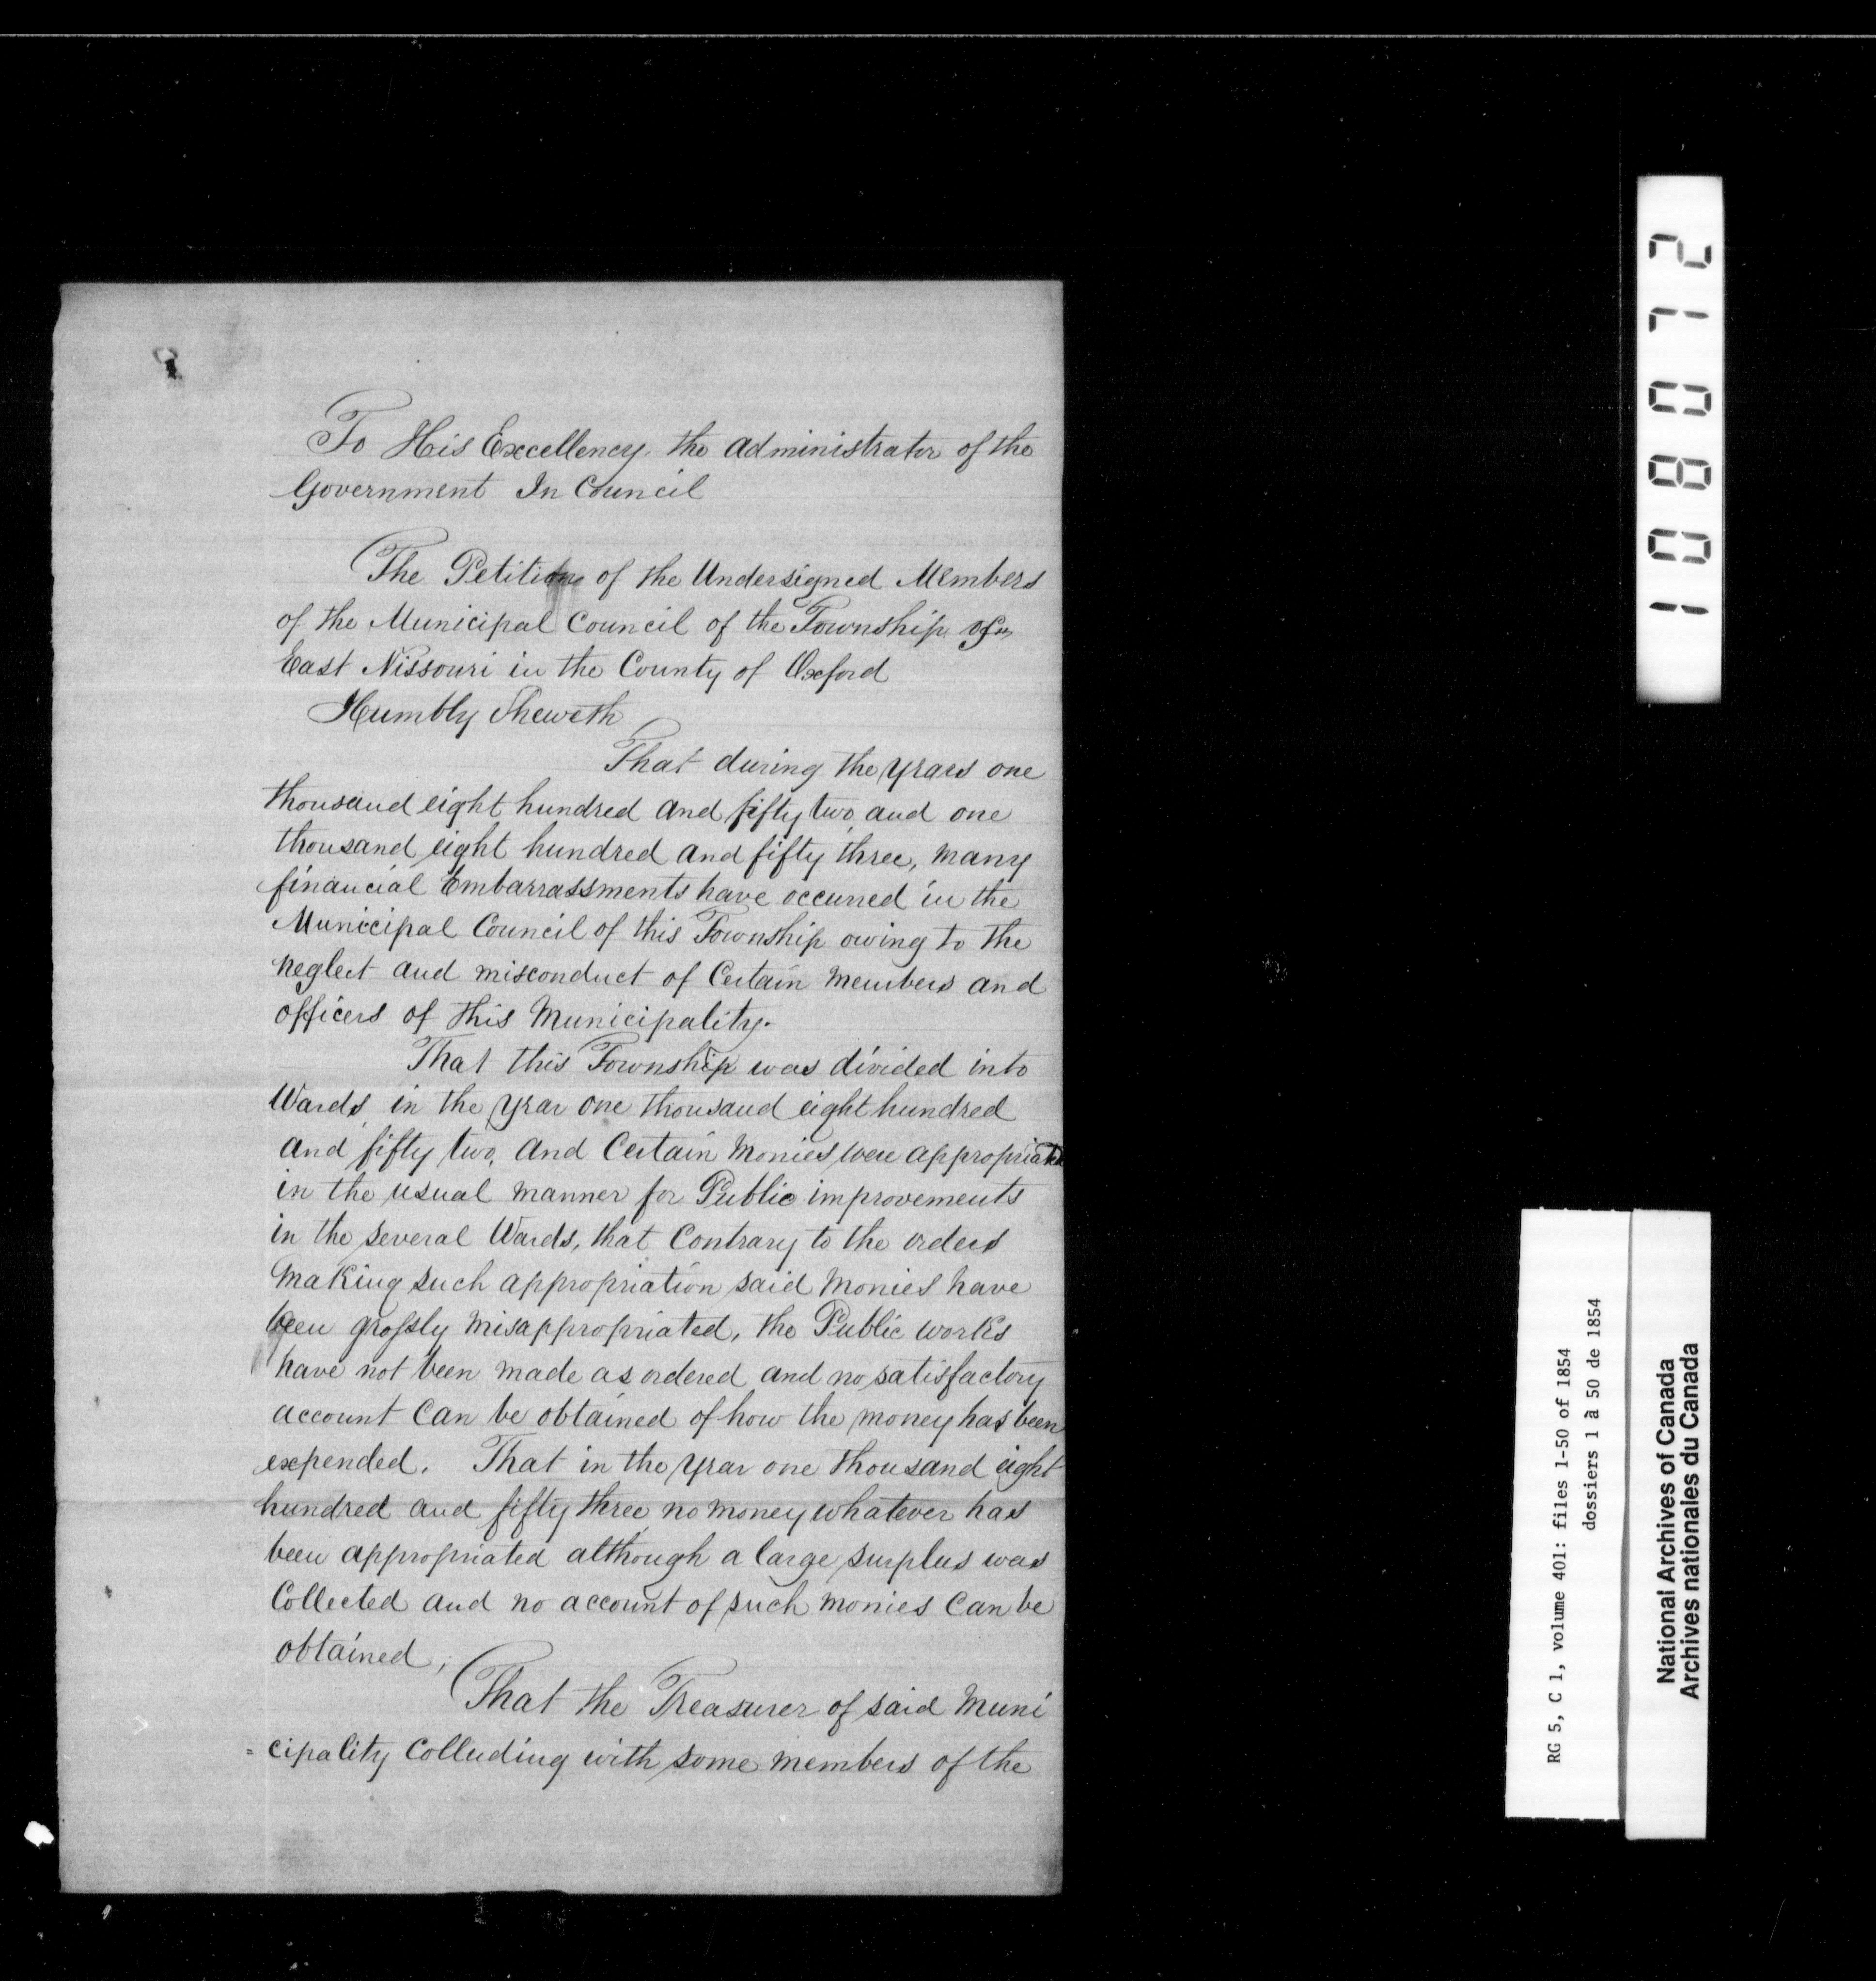 To His Excellency the Administrator of the
Government In Council
The Petition of the Undersigned Members
of the Municipal Council of the Township of
East Nissouri in the County of Oxford
Humbly Sheweth
That during the years one
thousand eight hundred and fifty two, and one
thousand eight hundred and fifty three, many
financial Embarrassments have occurred in the
Municipal Council of this Township owing to the
neglect and misconduct of Certain Members and
officers of this Municipality.
That this Township was divided into
Wards, in the year one thousand eight hundred
and fifty two, and Certain Monies were appropriated
in the usual manner for Public improvements
in the several Wards, that Contrary to the orders
Making such appropriation said Monies have
been grossly Misappropriated, the Public works
have not been made as ordered and no satisfactory
account Can be obtained of how the money has been
expended. That in the year one thousand eight
hundred and fifty three no money whatever has
been appropriated although a large surplus was
Collected and no account of such monies Can be
obtained,
That the Treasurer of said Muni
= cipality Colluding with some members of the
108072
RG 5, C 1, volume 401: files 1-50 of 1854
dossiers 1 à 50 de 1854
National Archives of Canada
Archives nationales du Canada